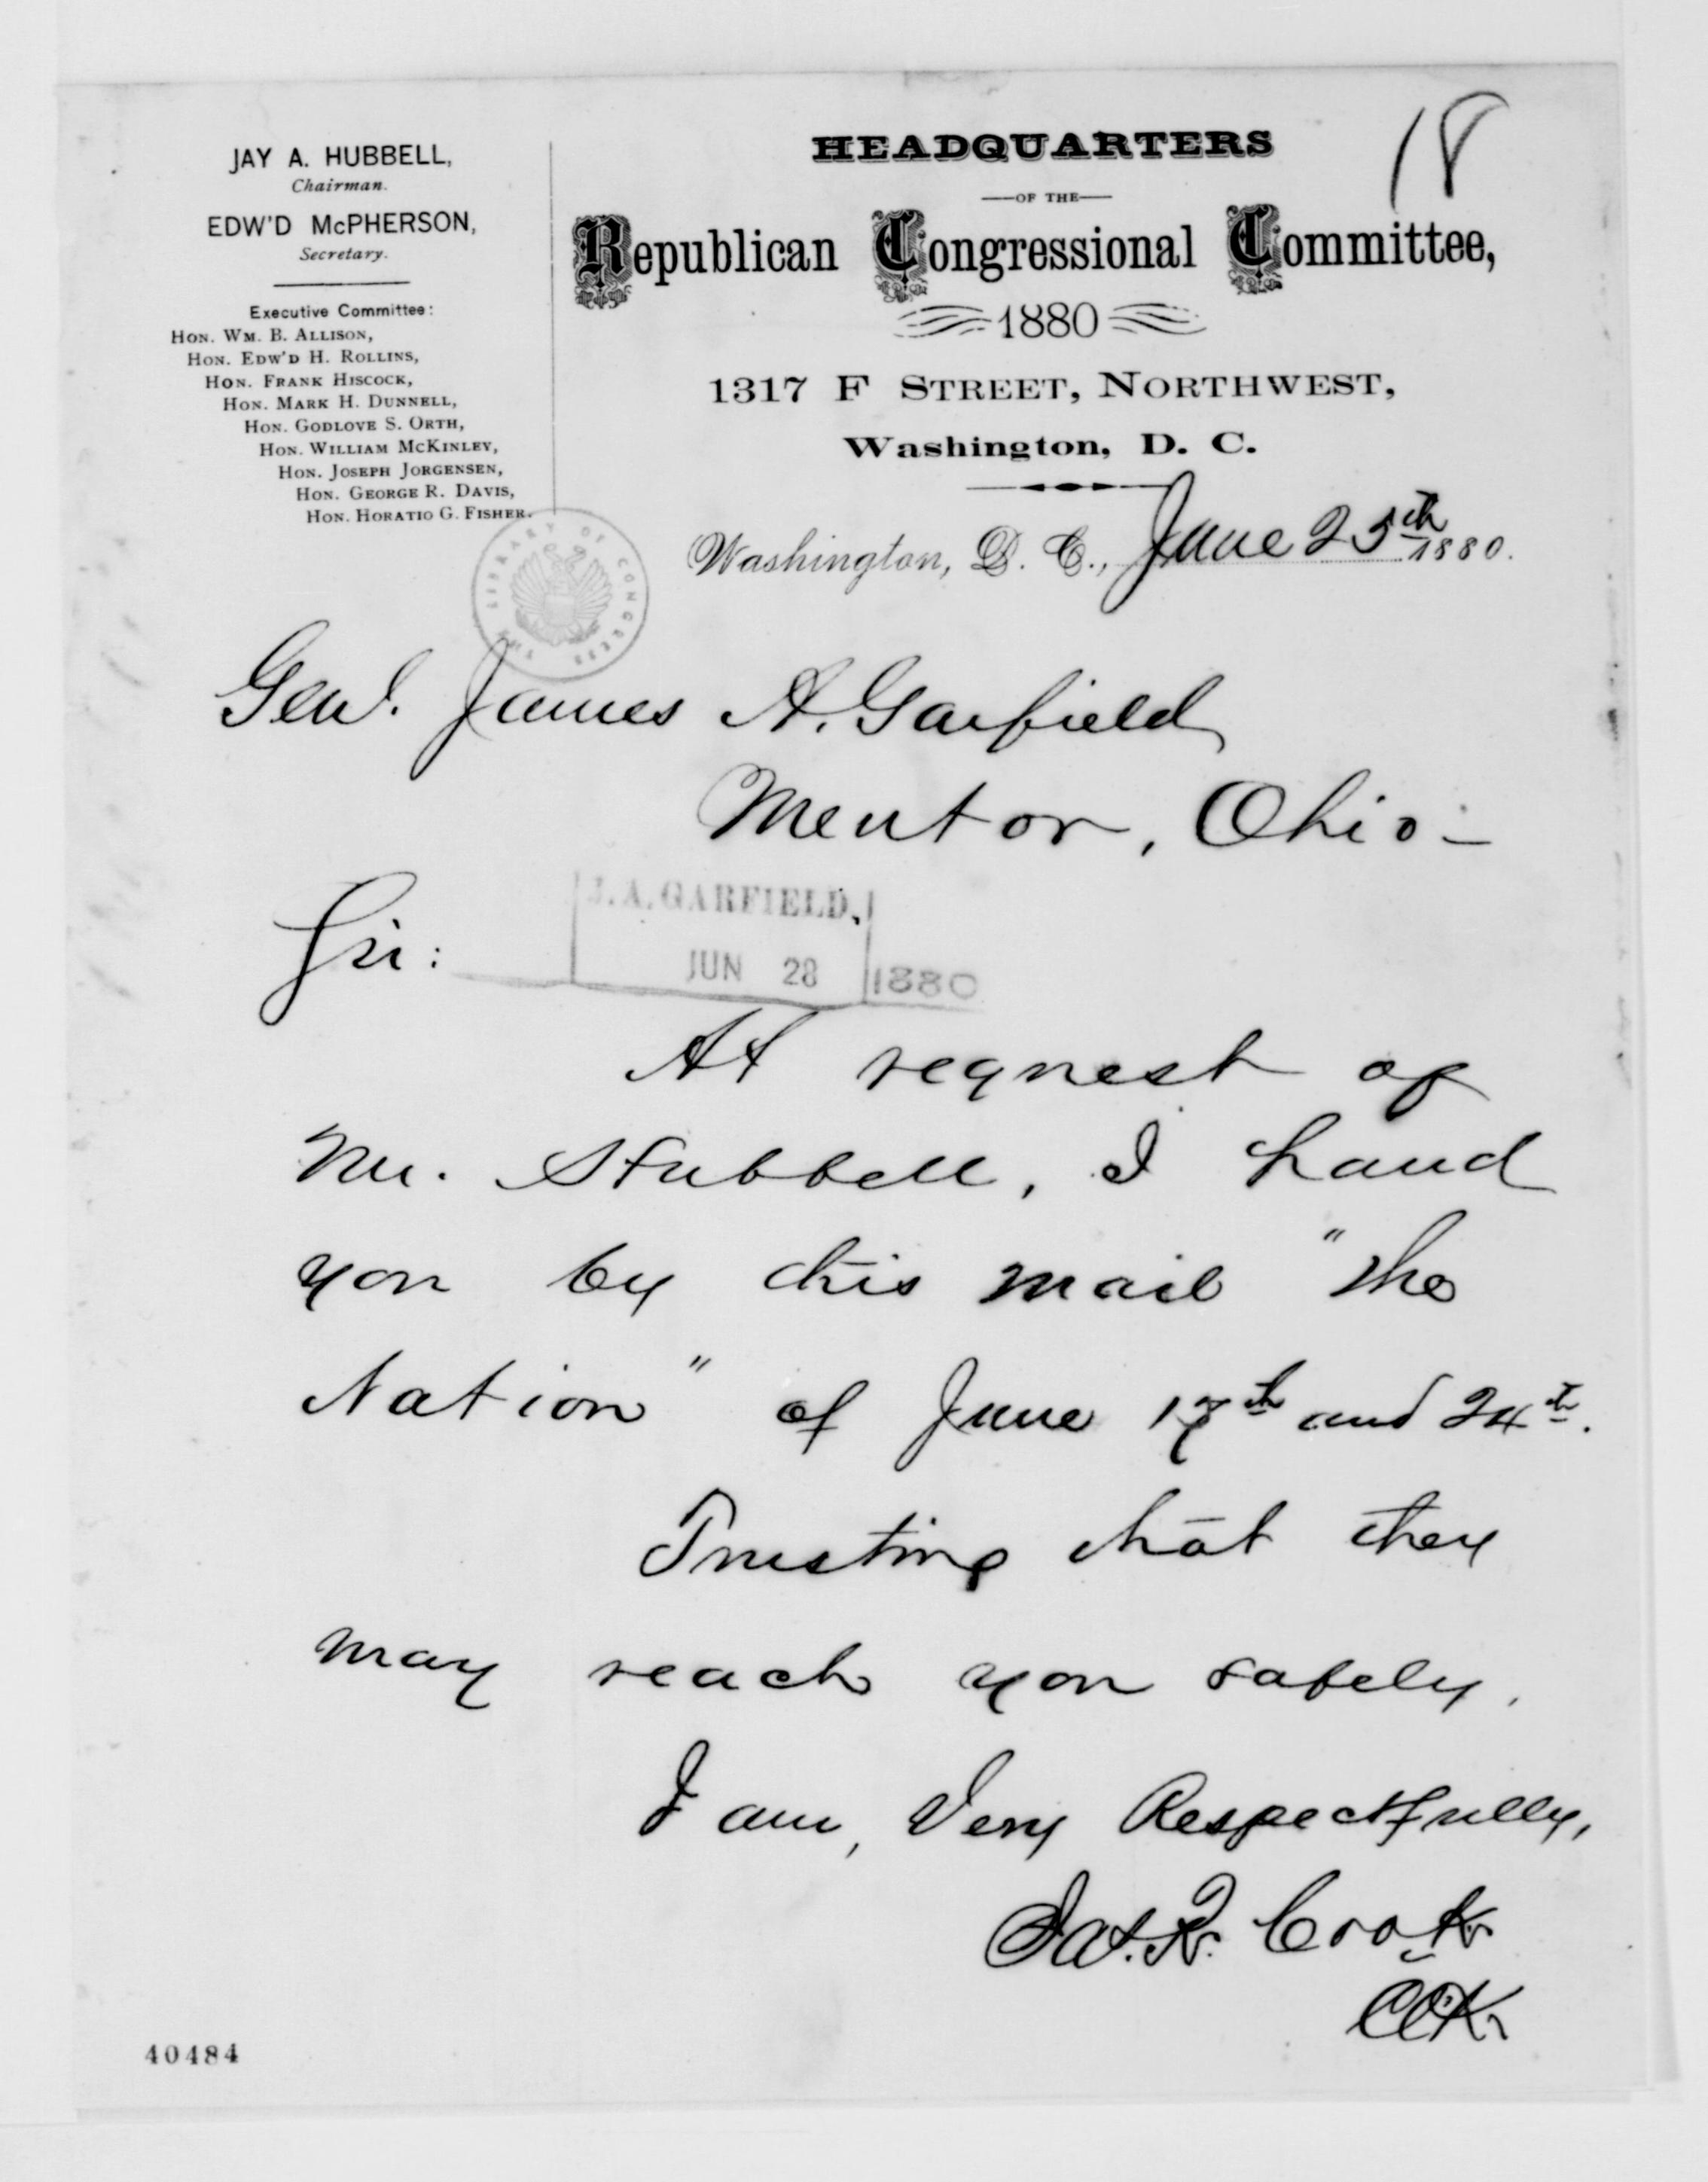 18
JAY A. HUBBELL,
Chairman.
EDW'D McPHERSON,
Secretary.
Executive Committee:
HON. WM. B. ALLISON,
HON. EDW'D H. ROLLINS,
HON. FRANK HISCOCK,
HON. MARK H. DUNNELL,
HON. GODLOVE S. ORTH,
HON. WILLIAM McKINLEY,
HON. JOSEPH JORGENSEN,
HON. GEORGE R. DAVIS,
HON. HORATIO G. FISHER.
HEADQUARTERS
OF THE
Republican Congressional Committee,
1880
1317 F STREET, NORTHWEST,
Washington, D. C.
Washington, D. C., June 25th 1880.
THE LIBRARY OF CONGRESS
Genl. James A. Garfield
Mentor, Ohio-
Sir:
J. A. GARFIELD,
JUN 28 1880
At request of
Mr. Hubbell, I hand
you by this mail "The
Nation" of June 17th and 24th.
Trusting that they
may reach you safely,
I am, Very Respectfully,
Jas. R. Cook
40484